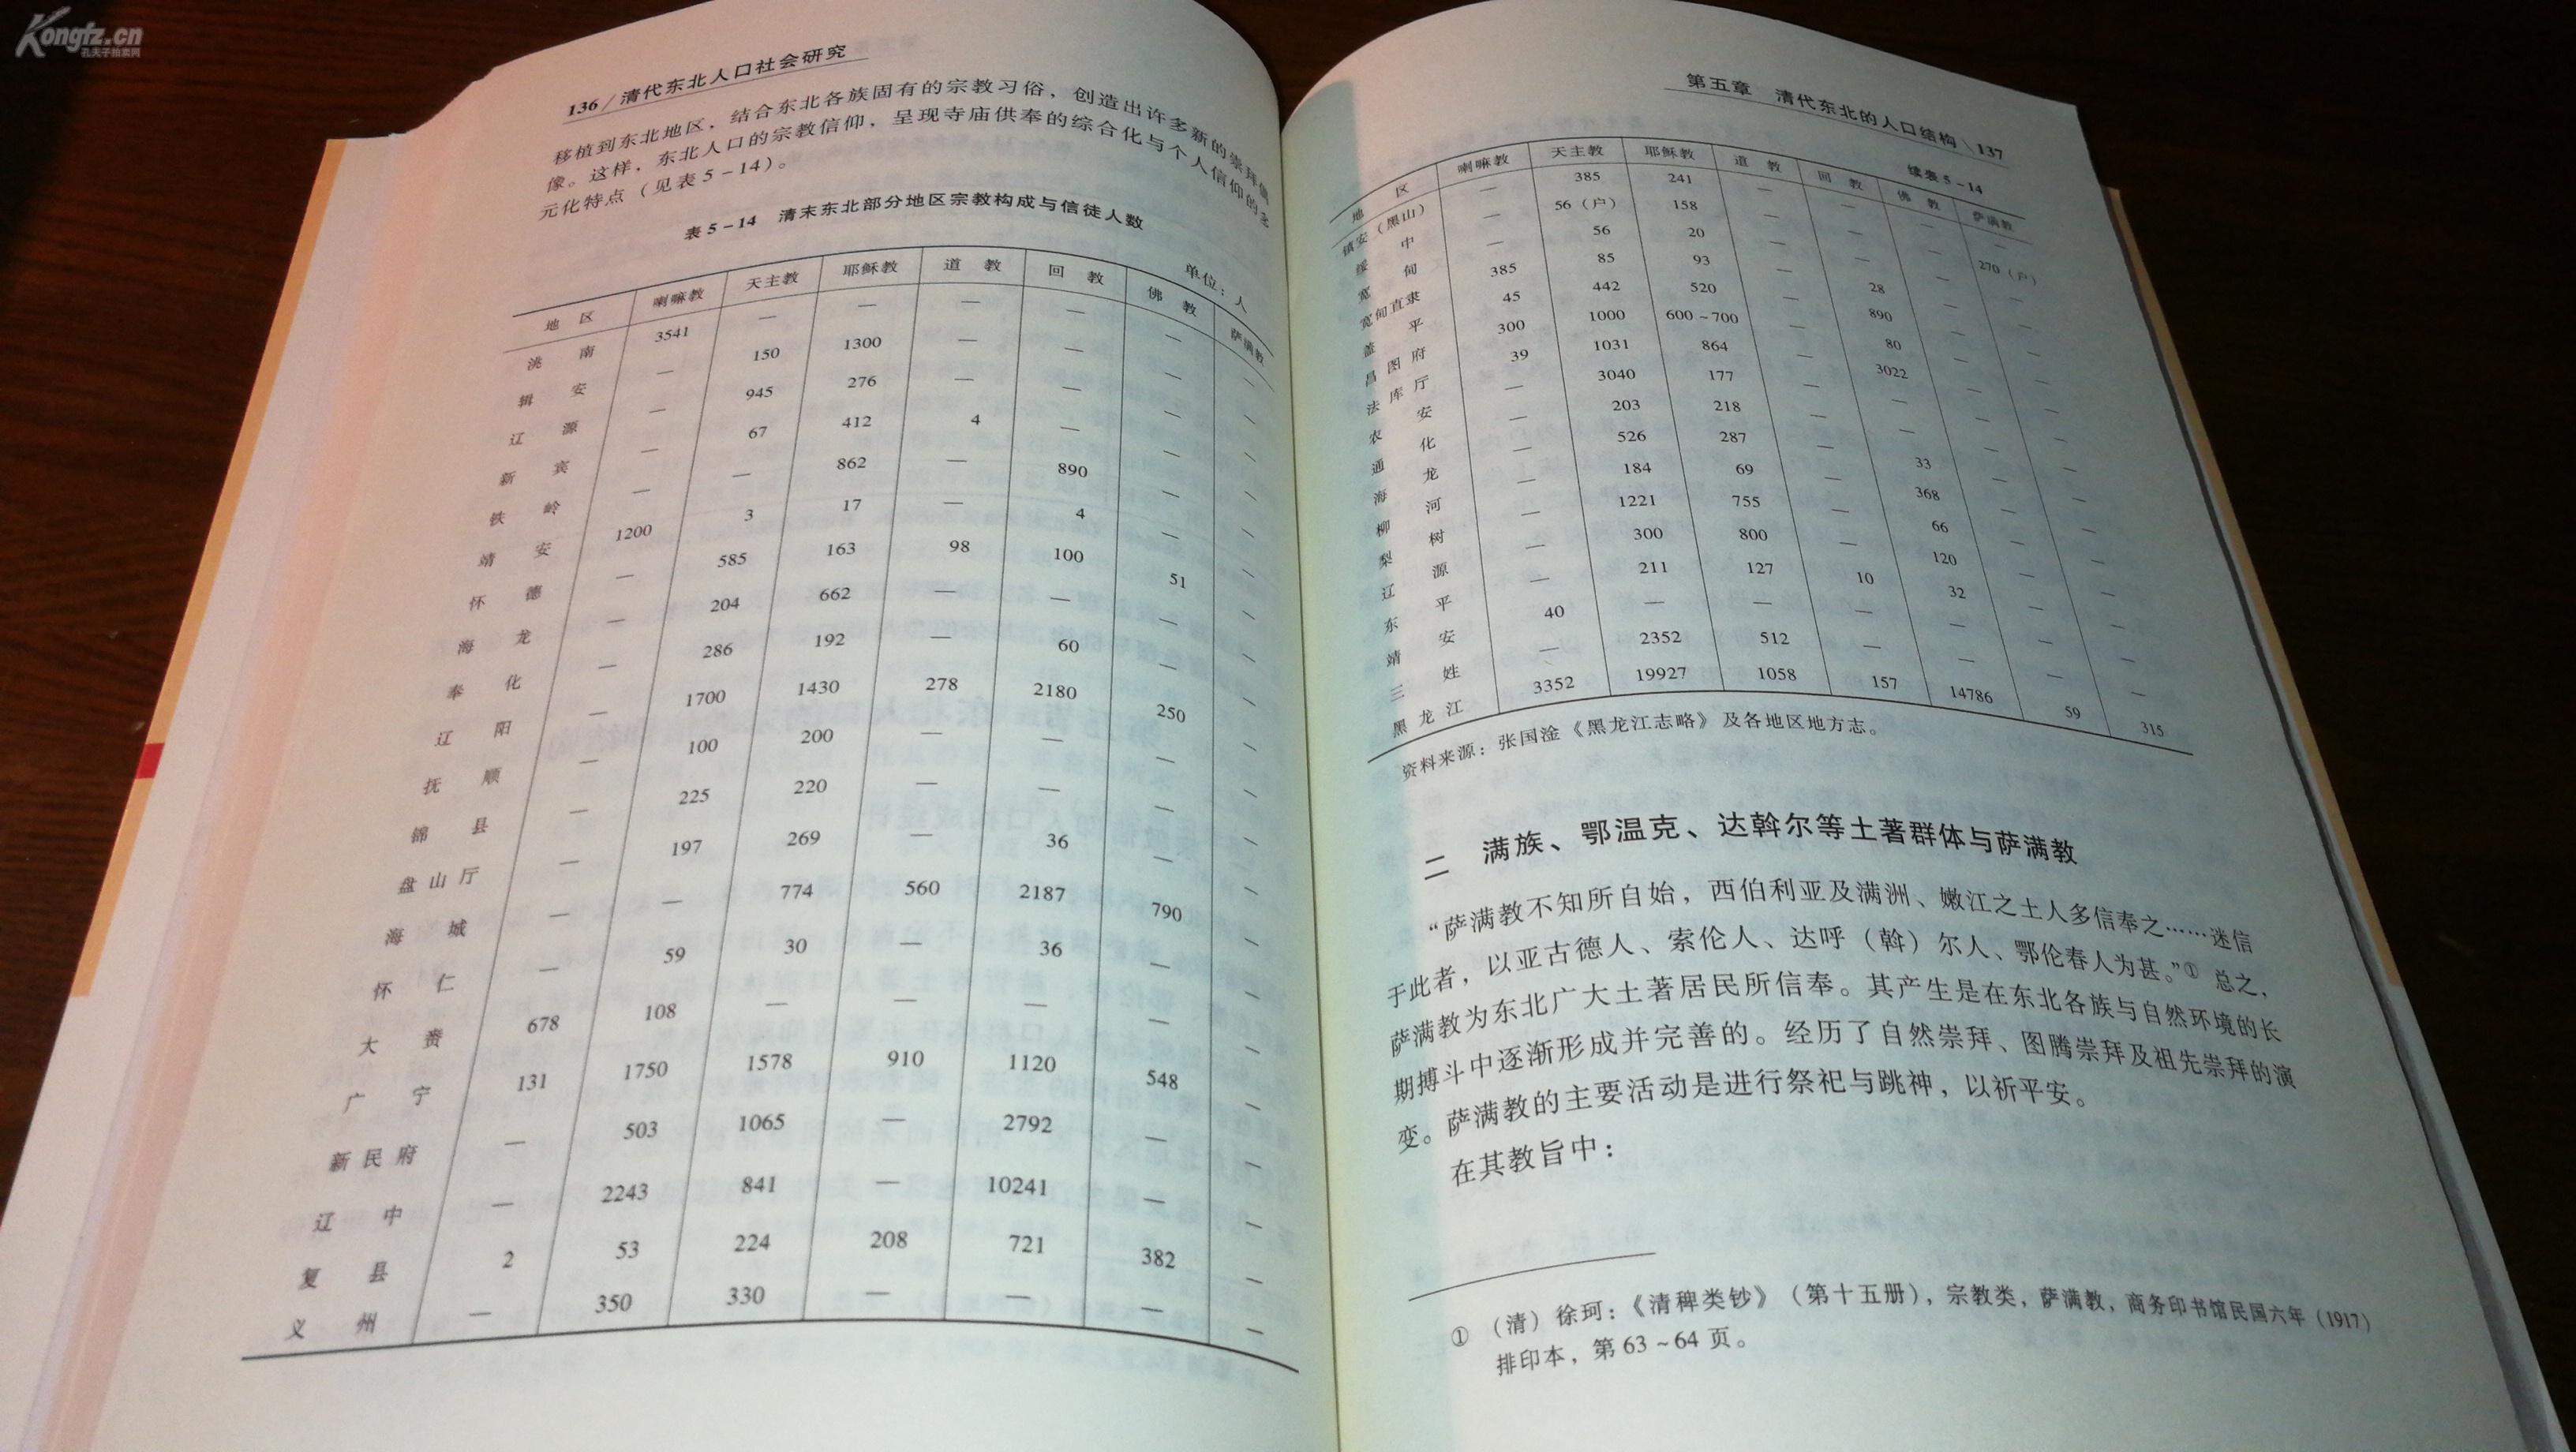 Kongfz.cn
孔夫子拍卖网
136 / 清代东北人口社会研究
移植到东北地区，结合东北各族固有的宗教习俗，创造出许多新的崇拜偶
像。这样，东北人口的宗教信仰，呈现寺庙供奉的综合化与个人信仰的多
元化特点（见表5－14）。
表5－14 清末东北部分地区宗教构成与信徒人数
单位：人
地区 喇嘛教 天主教 耶稣教 道教 回教 佛教 萨满教
洮南 3541 — — — — — —
辑安 — 150 1300 — — — —
辽源 — 945 276 — — — —
新宾 — 67 412 4 — — —
铁岭 — — 862 — 890 — —
靖安 1200 3 17 — 4 — —
怀德 — 585 163 98 100 51 —
海龙 — 204 662 — — — —
奉化 — 286 192 — 60 — —
辽阳 — 1700 1430 278 2180 250 —
抚顺 — 100 200 — — — —
锦县 — 225 220 — — — —
盘山厅 — 197 269 — 36 — —
海城 — — 774 560 2187 790 —
怀仁 — 59 30 — 36 — —
大赉 678 108 — — — — —
广宁 131 1750 1578 910 1120 548 —
新民府 — 503 1065 — 2792 — —
辽中 — 2243 841 — 10241 — —
复县 2 53 224 208 721 382 —
义州 — 350 330 — — — —
第五章 清代东北的人口结构 \ 137
续表5－14
地区 喇嘛教 天主教 耶稣教 道教 回教 佛教 萨满教
镇安（黑山） — 385 241 — — — —
绥中 — 56（户） 158 — — — 270（户）
宽甸 — 56 20 — — —
宽甸直隶 385 85 93 — 28
盖平 45 442 520 — 890
昌图府 300 1000 600～700 — 80
法库厅 39 1031 864 — 3022
农安 — 3040 177 — —
通化 — 203 218 — —
海龙 — 526 287 — 33
柳河 — 184 69 — 368
梨树 — 1221 755 — 66
辽源 — 300 800 — 120 —
东平 — 211 127 10 32 — —
靖安 40 — — — — — —
三姓 — 2352 512 — — — —
黑龙江 3352 19927 1058 157 14786 59 315
资料来源：张国淦《黑龙江志略》及各地区地方志。
二 满族、鄂温克、达斡尔等土著群体与萨满教
“萨满教不知所自始，西伯利亚及满洲、嫩江之土人多信奉之……迷信
于此者，以亚古德人、索伦人、达呼（斡）尔人、鄂伦春人为甚。”① 总之，
萨满教为东北广大土著居民所信奉。其产生是在东北各族与自然环境的长
期搏斗中逐渐形成并完善的。经历了自然崇拜、图腾崇拜及祖先崇拜的演
变。萨满教的主要活动是进行祭祀与跳神，以祈平安。
在其教旨中：
① （清）徐珂：《清稗类钞》（第十五册），宗教类，萨满教，商务印书馆民国六年（1917）
排印本，第63～64页。